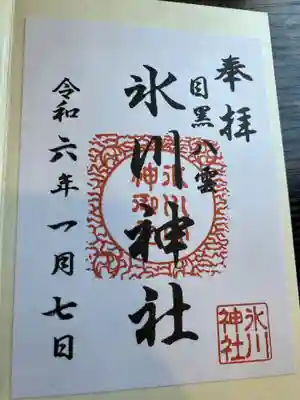 奉拝
目黒八雲
氷川神社
令和六年一月七日
氷川
神社
氷川
神社